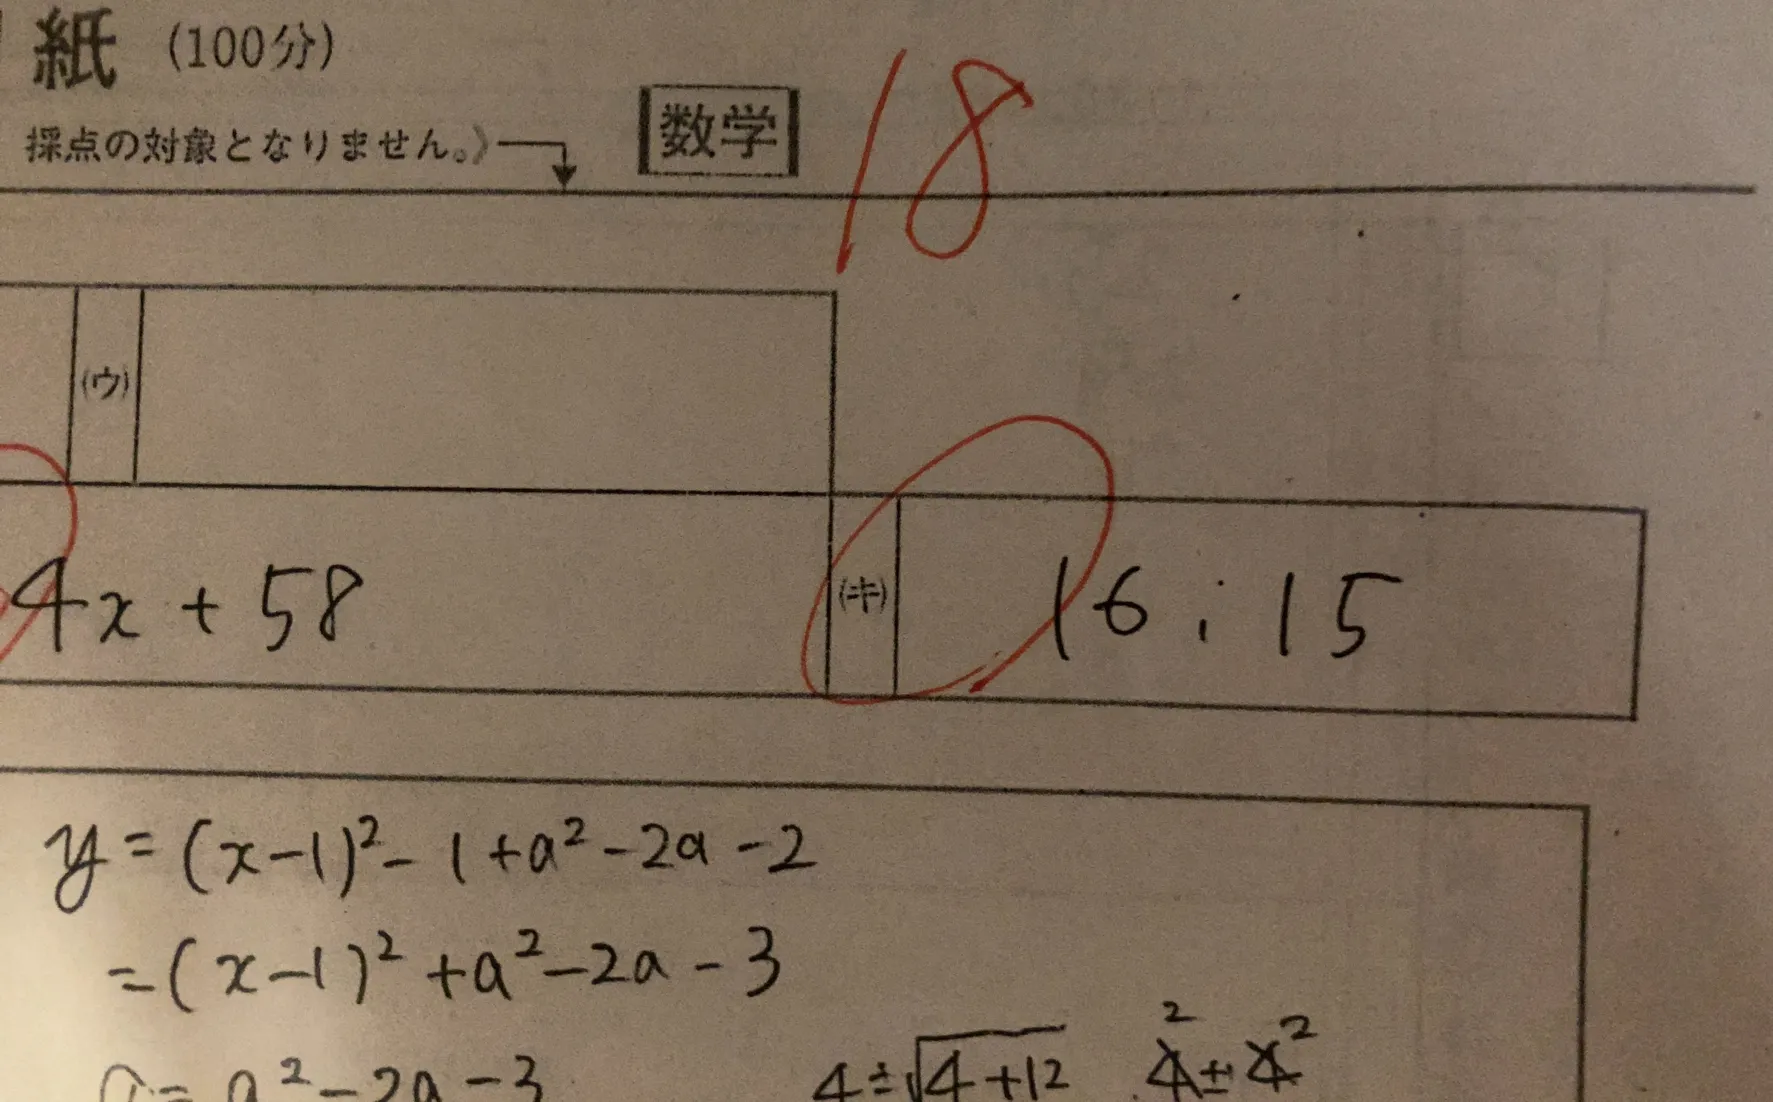 紙 (100分)
18
採点の対象となりません。》
数学
(ウ)
4x + 58
(キ)
16 : 15
y = (x-1)² - 1 + a² - 2a - 2
= (x-1)² + a² - 2a - 3
a² - 2a - 3
4 ± √4+12
4 ± 4
2
2